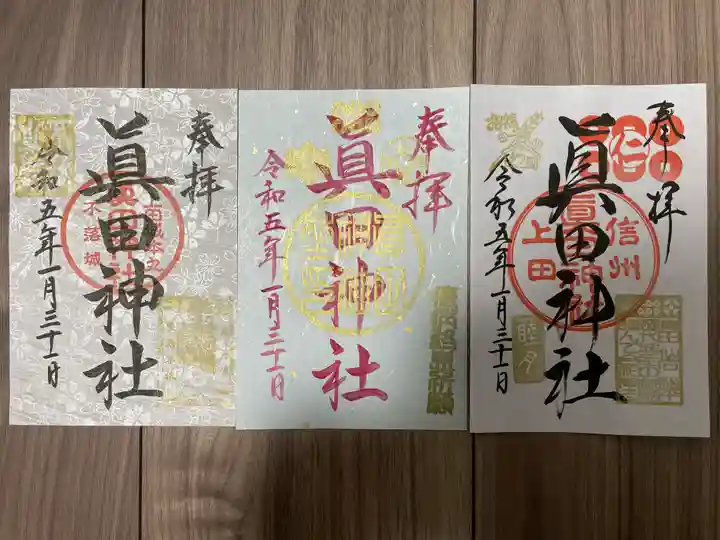 奉拝
眞田神社
不落城
令和五年一月三十一日
奉拝
眞田神社
令和五年一月三十一日
奉拝
眞田神社
信州
上田
睦月
令和五年一月三十一日